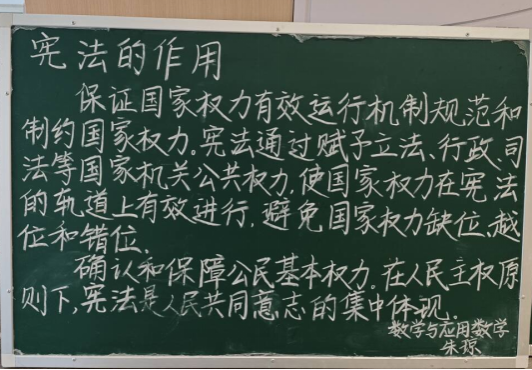 宪法的作用
保证国家权力有效运行机制规范和
制约国家权力。宪法通过赋予立法、行政、司
法等国家机关公共权力,使国家权力在宪法
的轨道上有效进行,避免国家权力缺位、越
位和错位.
确认和保障公民基本权力。在人民主权原
则下,宪法是人民共同意志的集中体现。
数学与应用数学
朱琼